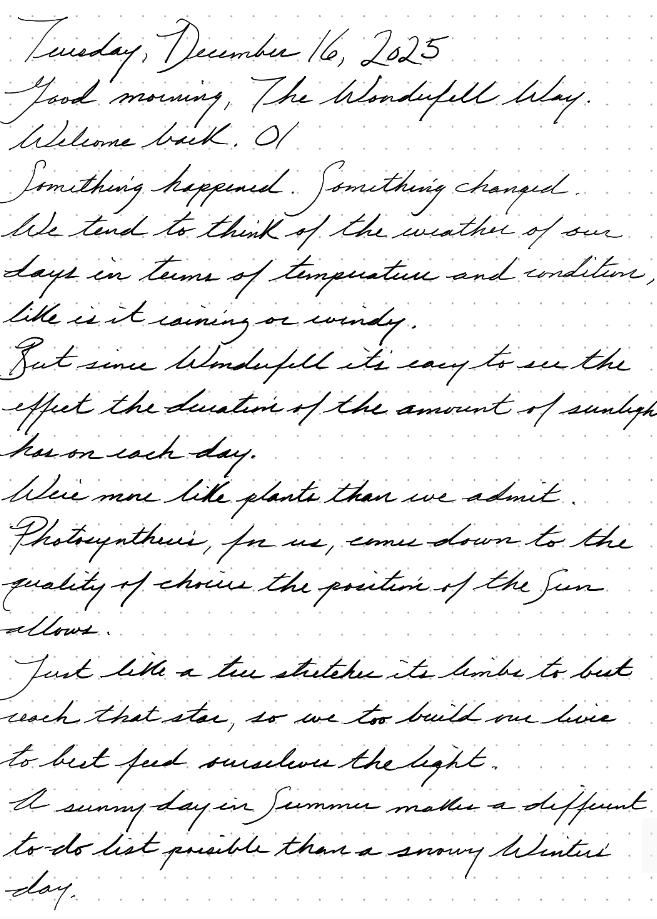 Tuesday, December 16, 2025
Good morning, The Wonderfell Way.
Welcome back. O/
Something happened. Something changed.
We tend to think of the weather of our
days in terms of temperature and condition,
like is it raining or windy.
But since Wonderfell it's easy to see the
effect the duration of the amount of sunligh
has on each day.
We're more like plants than we admit.
Photosynthesis, for us, comes down to the
quality of choices the position of the Sun
allows.
Just like a tree stretches its limbs to best
reach that star, so we too build our lives
to best feed ourselves the light.
A sunny day in Summer makes a different
to-do list possible than a snowy Winter's
day.